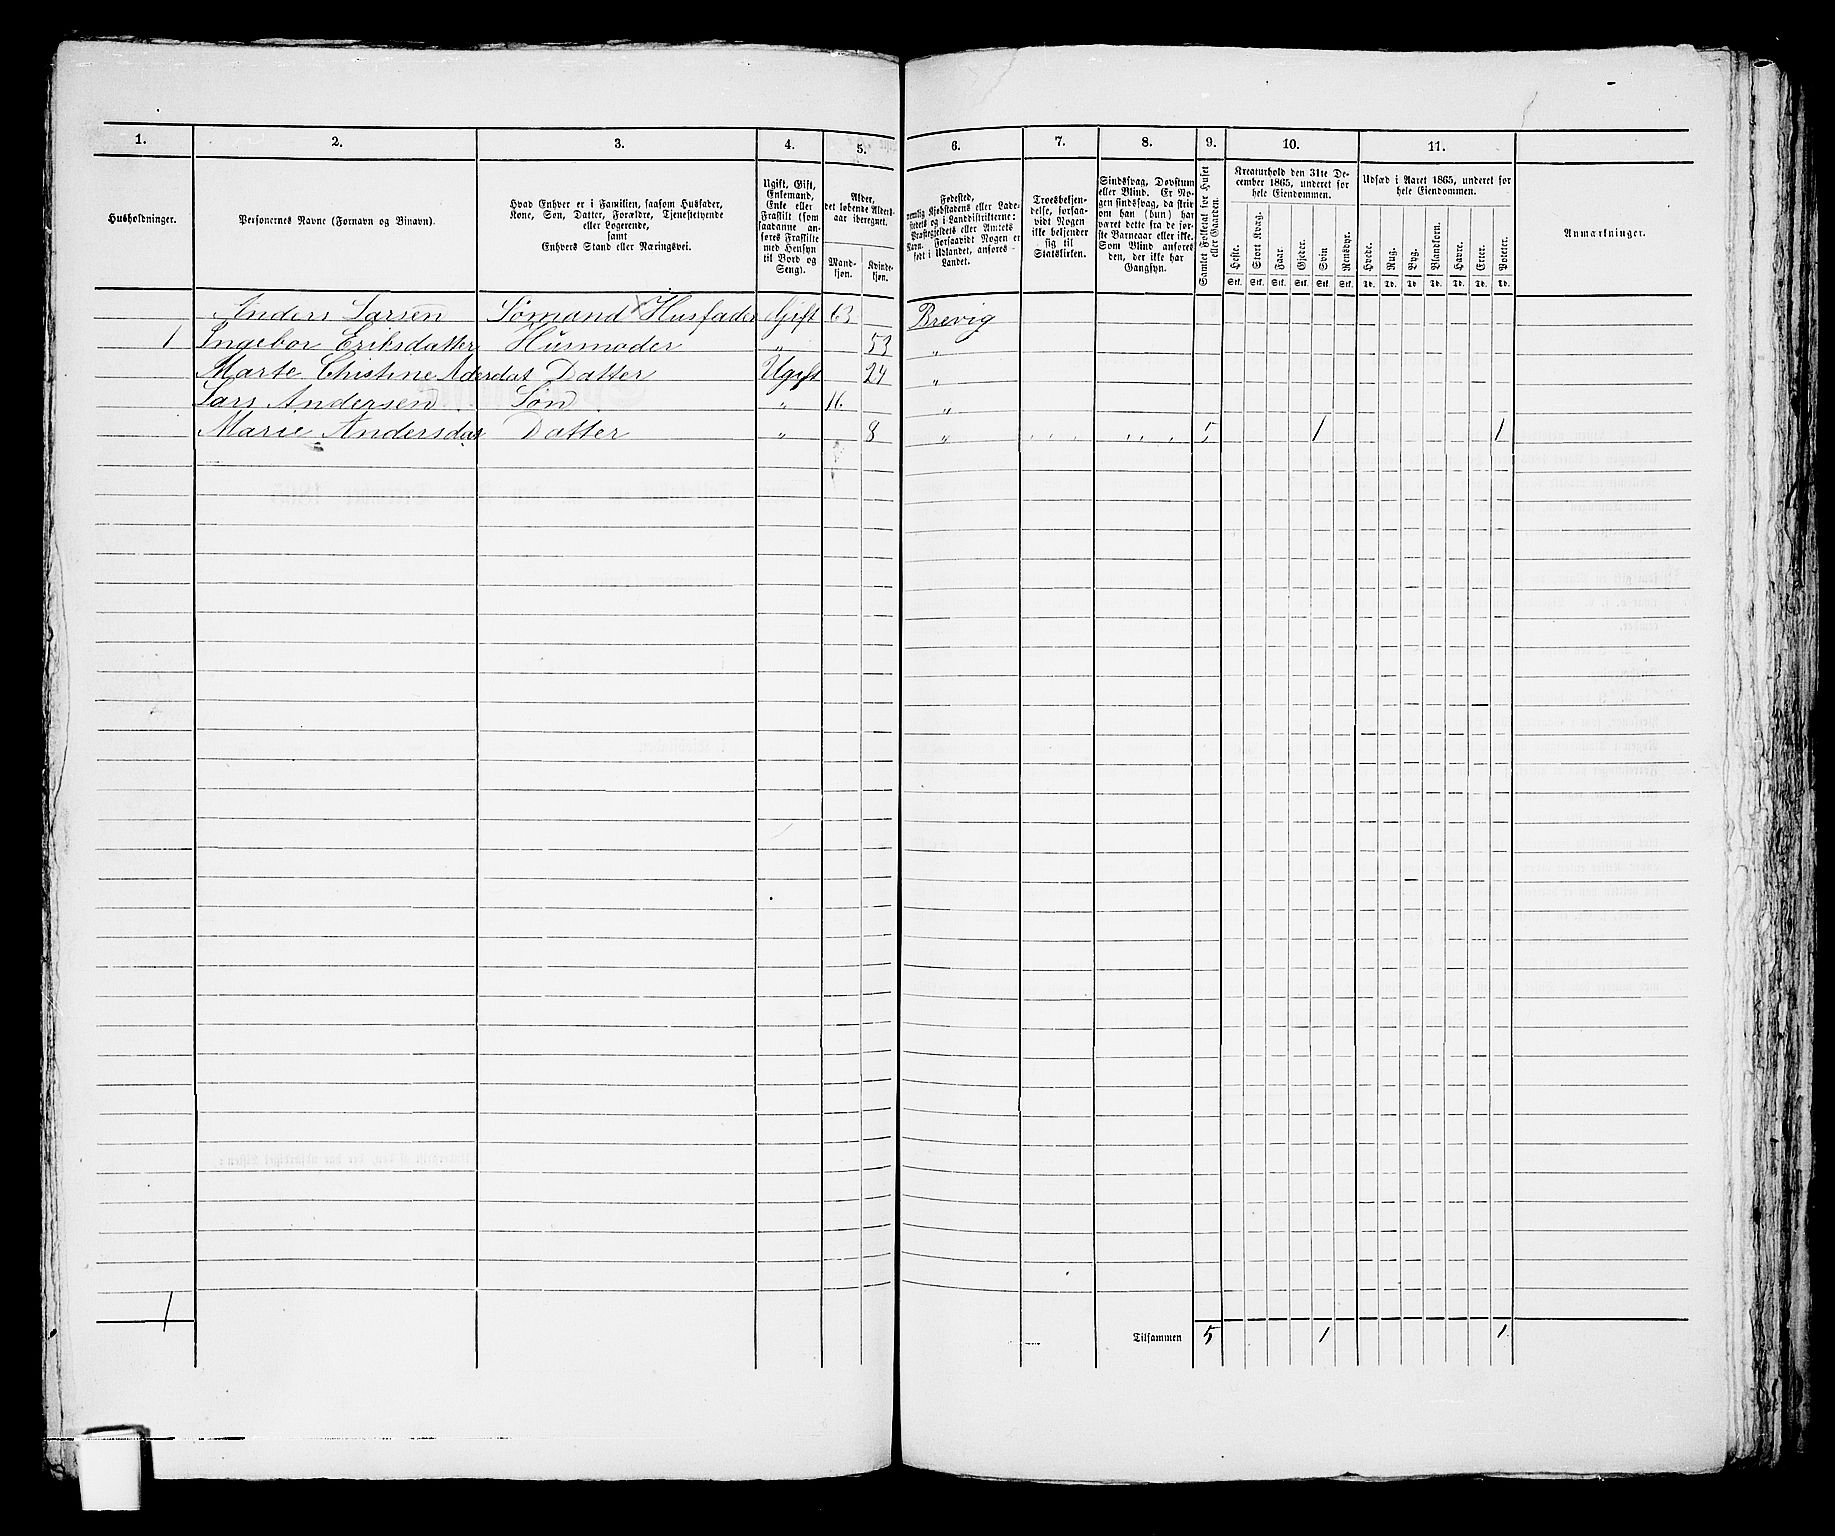 1. 2. 3. 4. 5. 6. 7. 8. 9. 10. 11.
Husholdninger.
Personernes Navne (Fornavn og Binavn).
Hvad Enhver er i Familien, saasom Husfader,
Kone, Søn, Datter, Forældre, Tjenestetyende
eller Logerende,
samt
Enhvers Stand eller Næringsvei.
Ugift, Gift,
Enkemand,
Enke eller
Fraskilt (som
saadanne an-
føres Fraskilte
med Hensyn
til Bord og
Seng).
Alder,
det løbende Alders-
aar iberegnet.
Mand-
kjøn.
Kvinde-
kjøn.
Fødested,
nemlig Kjøbstadens eller Lade-
stedets og i Landdistrikterne:
Præstegjeldets eller Amtets
Navn. Forsaavidt Nogen er
født i Udlandet, anføres
Landet.
Troesbekjen-
delse, forsaa-
vidt Nogen
ikke bekjender
sig til
Statskirken.
Sindssvag, Døvstum
eller Blind. Er No-
gen sindssvag, da skriv
om han (hun) har
været dette fra de før-
ste Barneaar eller ikke.
Som Blind anføres
den, der ikke har
Gangsyn.
Samlet Folketal for Huset
eller Gaarden.
Kreaturhold den 31te De-
cember 1865, underet for
hele Eiendommen.
Heste. Stort Kvæg. Faar. Gjeder. Svin Rensdyr.
Stk. Stk. Stk. Stk. Stk. Stk.
Udsæd i Aaret 1865, underet for
hele Eiendommen.
Hvede. Rug. Byg. Blandkorn. Havre. Erter. Poteter.
Td. Td. Td Td. Td. Td. Td.
Anmærkninger.
Anders Larsen Sømand Husfader Gift 63 Brevig
1 Ingebor Eriksdatter Husmoder „ 53 „
Marte Chistine Aderdat Datter Ugift 24 „
Lars Andersen Søn „ 16 „
Marie Andersdat Datter „ 8 „ 5 1 1
1 Tilsammen 5 1 1